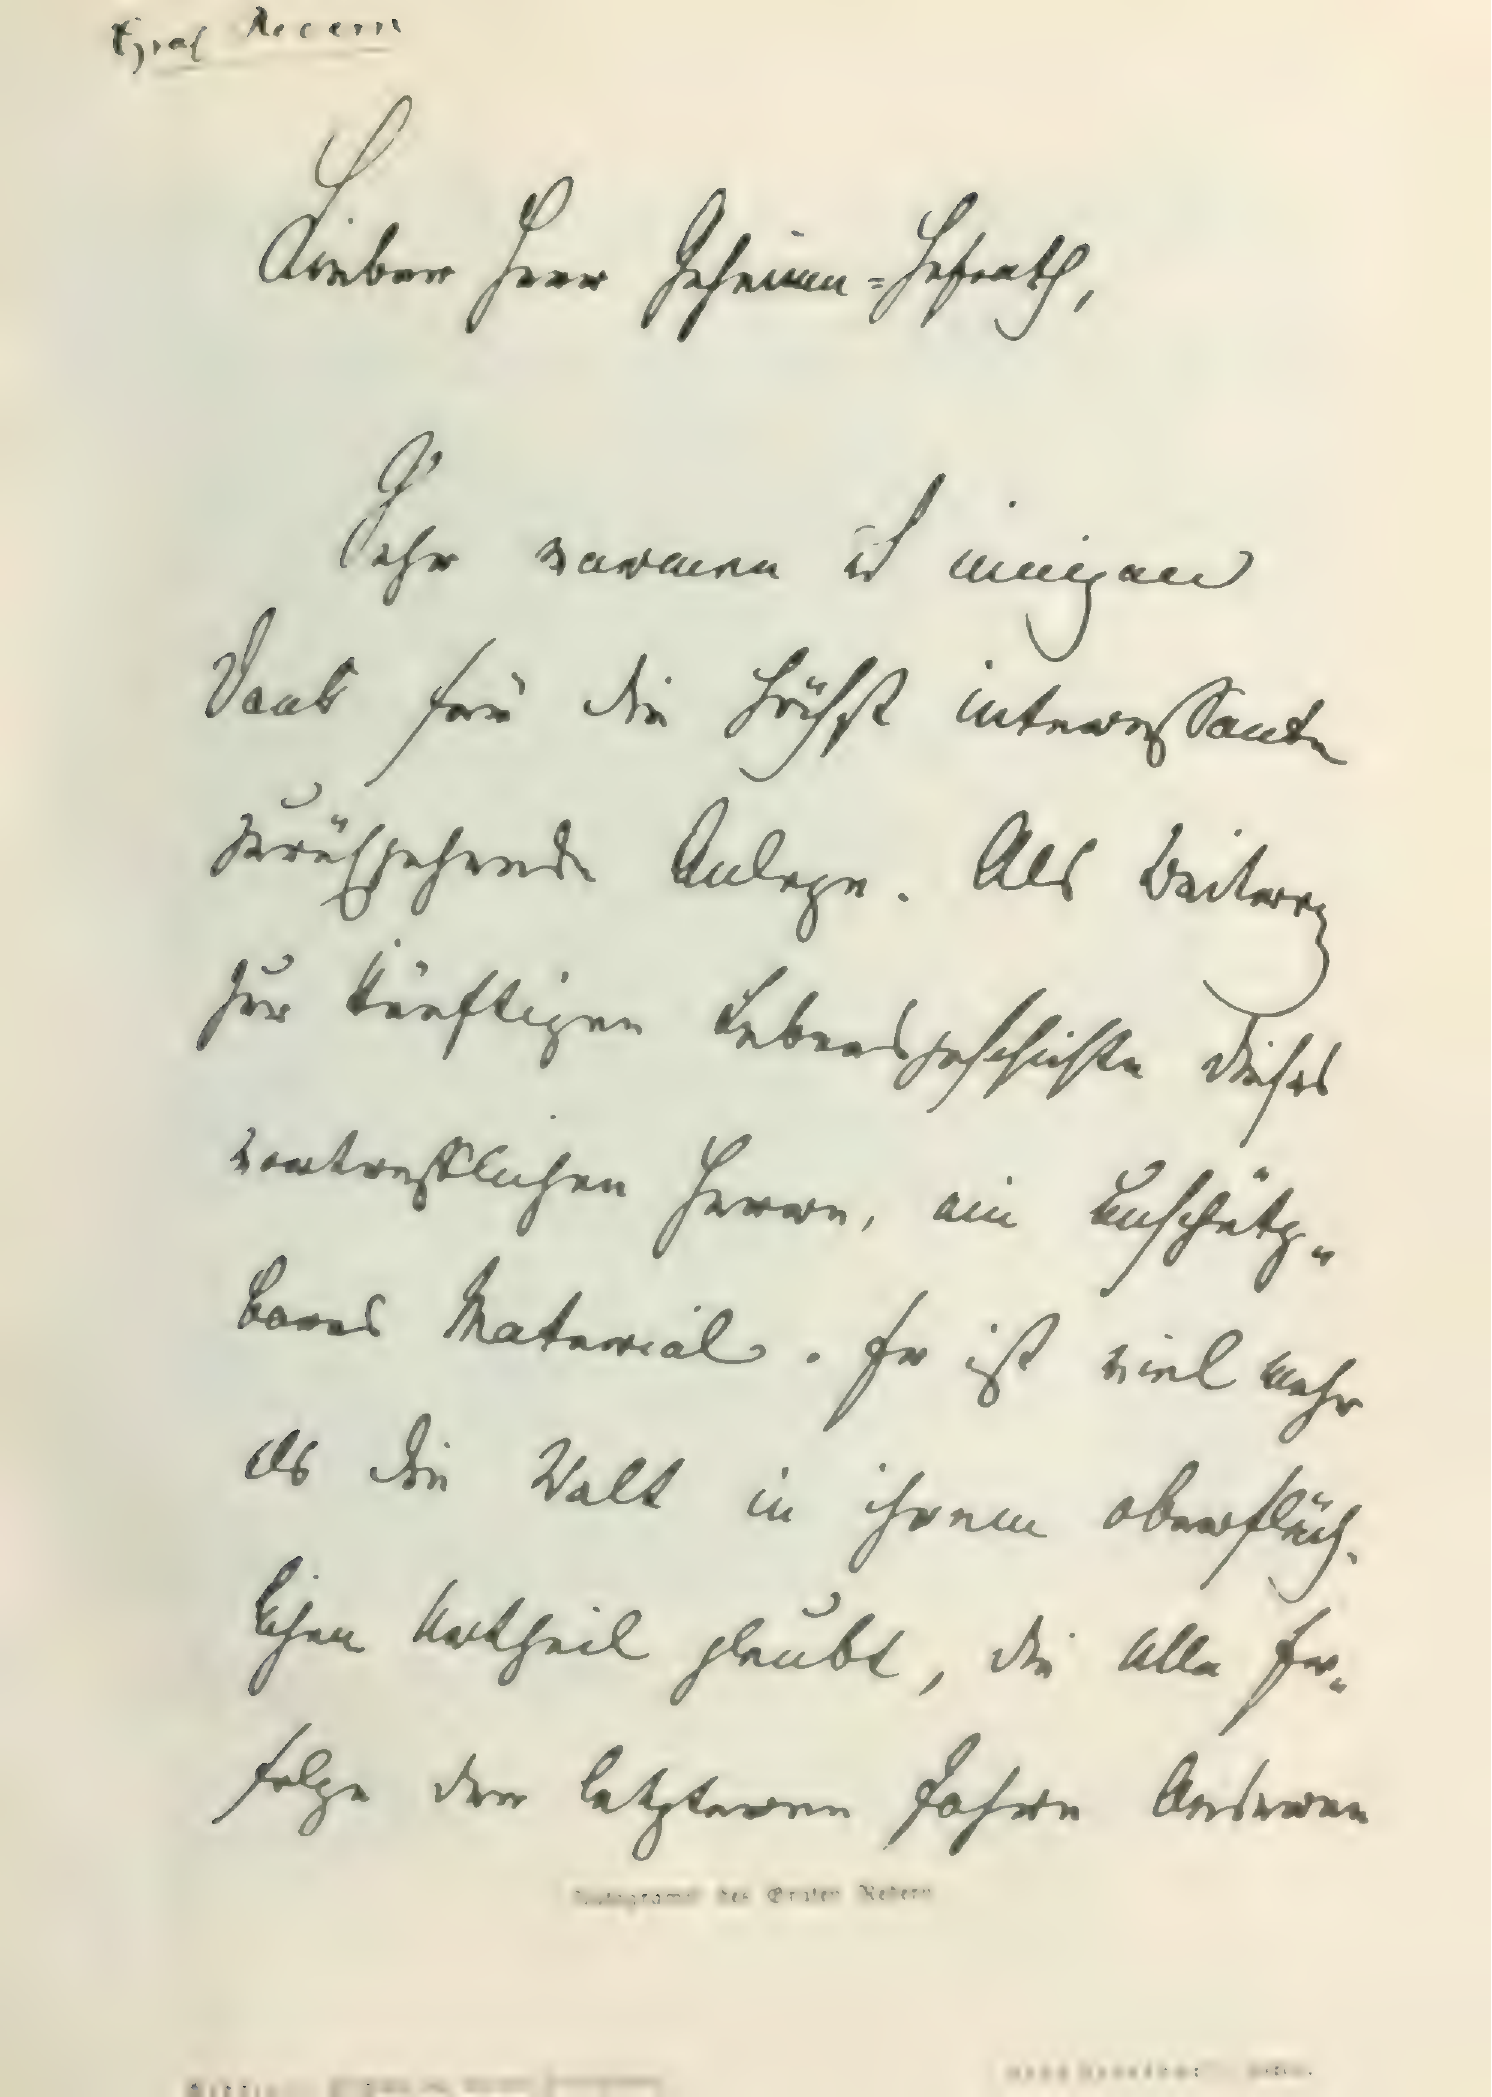 Graf Redern
Lieber Herr Geheimer=Hofrath,
Sehr warmen u innigen
Dank für die höchst interessante
zurückgehende Anlage. Als Beitrag
zur künftigen Lebensgeschichte dieses
vortrefflichen Herren, ein unschätz„
bares Material. Er ist viel mehr
als die Welt in ihrem oberfläch.
lichen Urtheil glaubt, die alle Er„
folge der letzteren Jahre Anderen
Autogramm des Grafen Redern